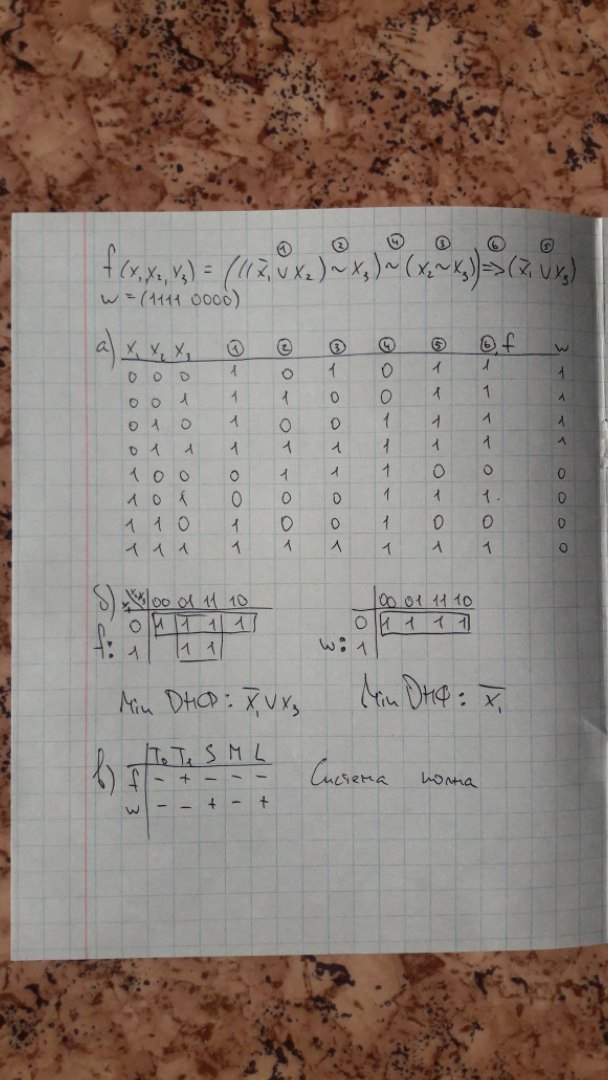 ① ② ④ ③ ⑥ ⑤
f(x₁x₂,x₃) = (((x̄₁∨x₂)~x₃)~(x₂~x₃))=>(x̄₁∨x₃)
w=(1111 0000)
а) x₁ x₂ x₃ ① ② ③ ④ ⑤ ⑥,f w
0 0 0 1 0 1 0 1 1 1
0 0 1 1 1 0 0 1 1 1
0 1 0 1 0 0 1 1 1 1
0 1 1 1 1 1 1 1 1 1
1 0 0 0 1 1 1 0 0 0
1 0 1 0 0 0 1 1 1. 0
1 1 0 1 0 0 1 0 0 0
1 1 1 1 1 1 1 1 1 0
б) x₁ x₂x₃ 00 01 11 10 00 01 11 10
f: 0 1 1 1 1 w: 0 1 1 1 1
1 1 1 1
Min ДНФ: x̄₁∨x₃ Min ДНФ: x̄₁
в) T₀ T₁ S M L
f − + − − − Система полна
w − − + − +